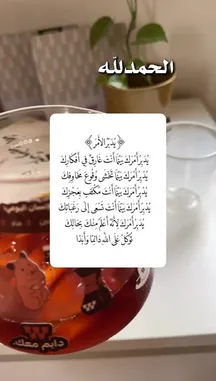 الحمدلله
﴿ يُدَبِّرُ الأَمْرَ ﴾
يُدَبِّرُ أَمْرَكَ بَيْنَمَا أَنْتَ غَارِقٌ فِي أَفْكَارِكَ
يُدَبِّرُ أَمْرَكَ بَيْنَمَا تَخْشَى وُقُوعَ مَخَاوِفِكَ
يُدَبِّرُ أَمْرَكَ بَيْنَمَا أَنْتَ مُكْتَفٍ بِعَجْزِكَ
يُدَبِّرُ أَمْرَكَ بَيْنَمَا أَنْتَ تَسْعَى إِلَى رَغَبَاتِكَ
يُدَبِّرُ أَمْرَكَ لأَنَّهُ أَعْلَمُ مِنْكَ بِحَالِكَ
تَوَكَّلْ عَلَى اللَّهِ دَائِمًا وَأَبَدًا
دايم معك